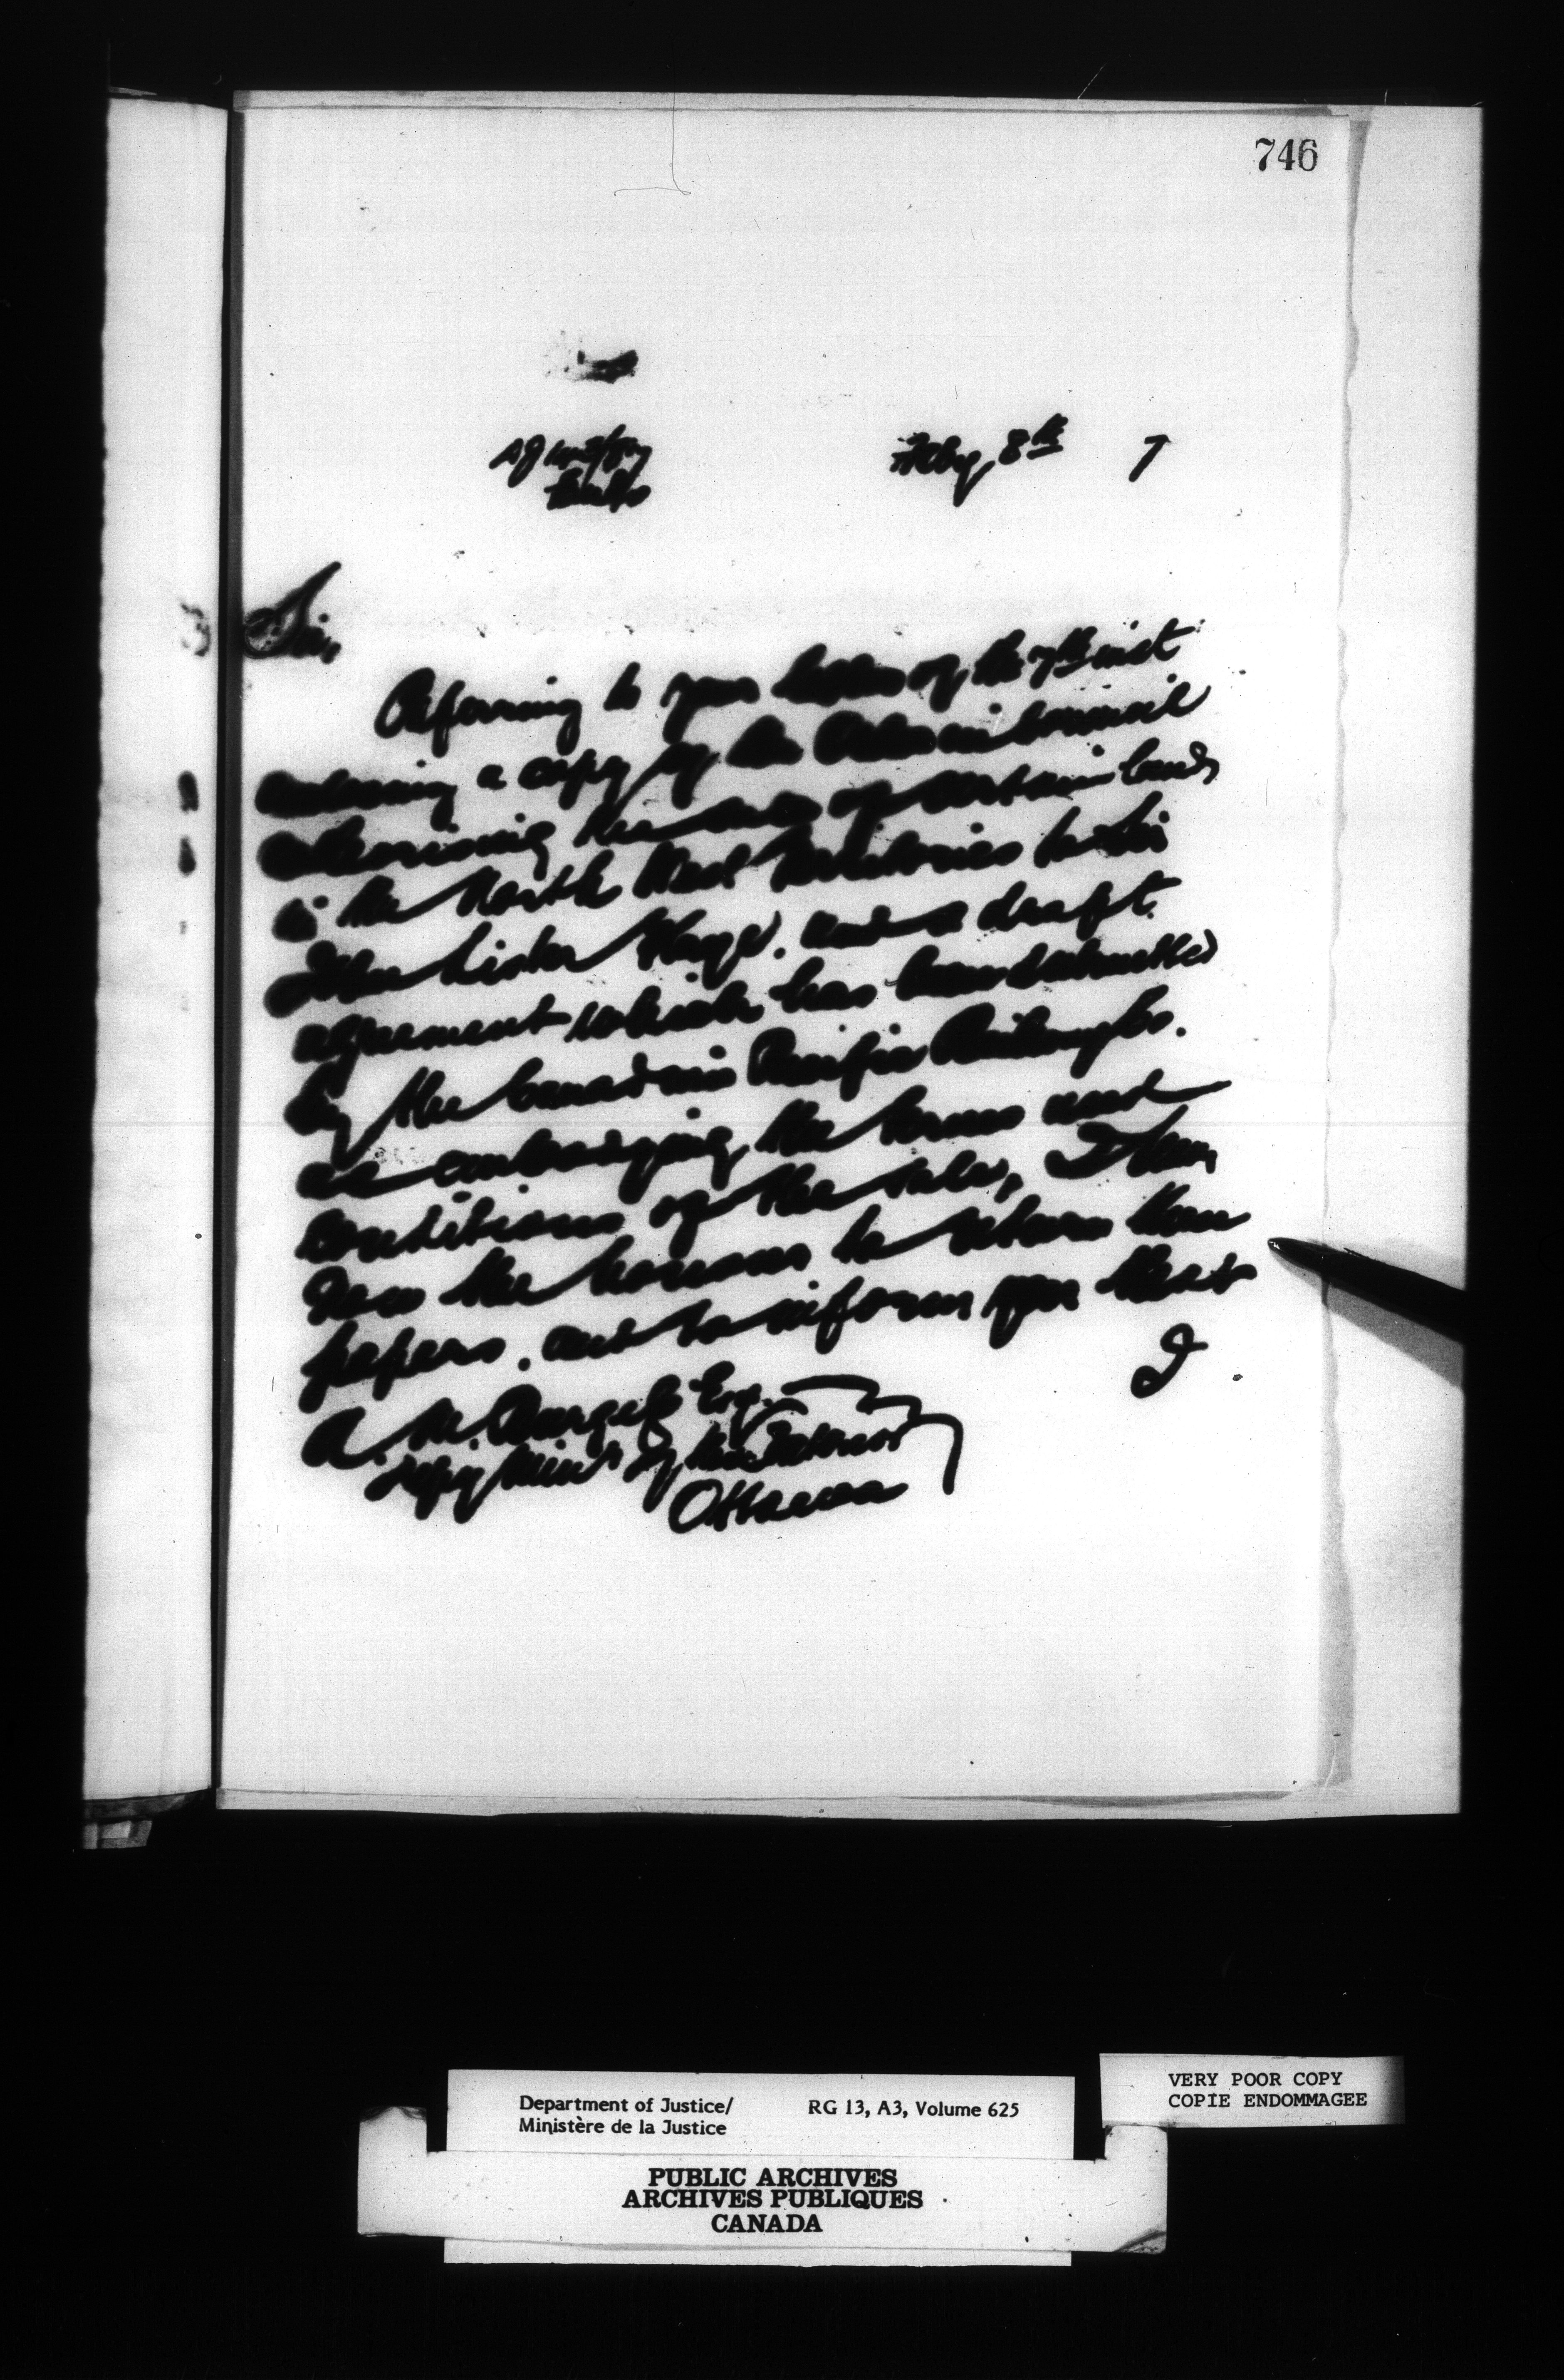 746
Feby 8th 7
Sir,
Referring to your letter of the 7th inst
enclosing a copy of the Order in Council
authorising the sale of certain lands
in the North West Territories to Sir
John Lister Kaye, and a draft
agreement which has been submitted
by the Canadian Pacific Railway Co.
as embodying the terms and
conditions of the sale, I have
now the honour to return these
papers, and to inform you that
I
A. M. Burgess Esq.
Depy Minr of the Interior
Ottawa
VERY POOR COPY
COPIE ENDOMMAGEE
Department of Justice/ RG 13, A3, Volume 625
Ministère de la Justice
PUBLIC ARCHIVES
ARCHIVES PUBLIQUES
CANADA